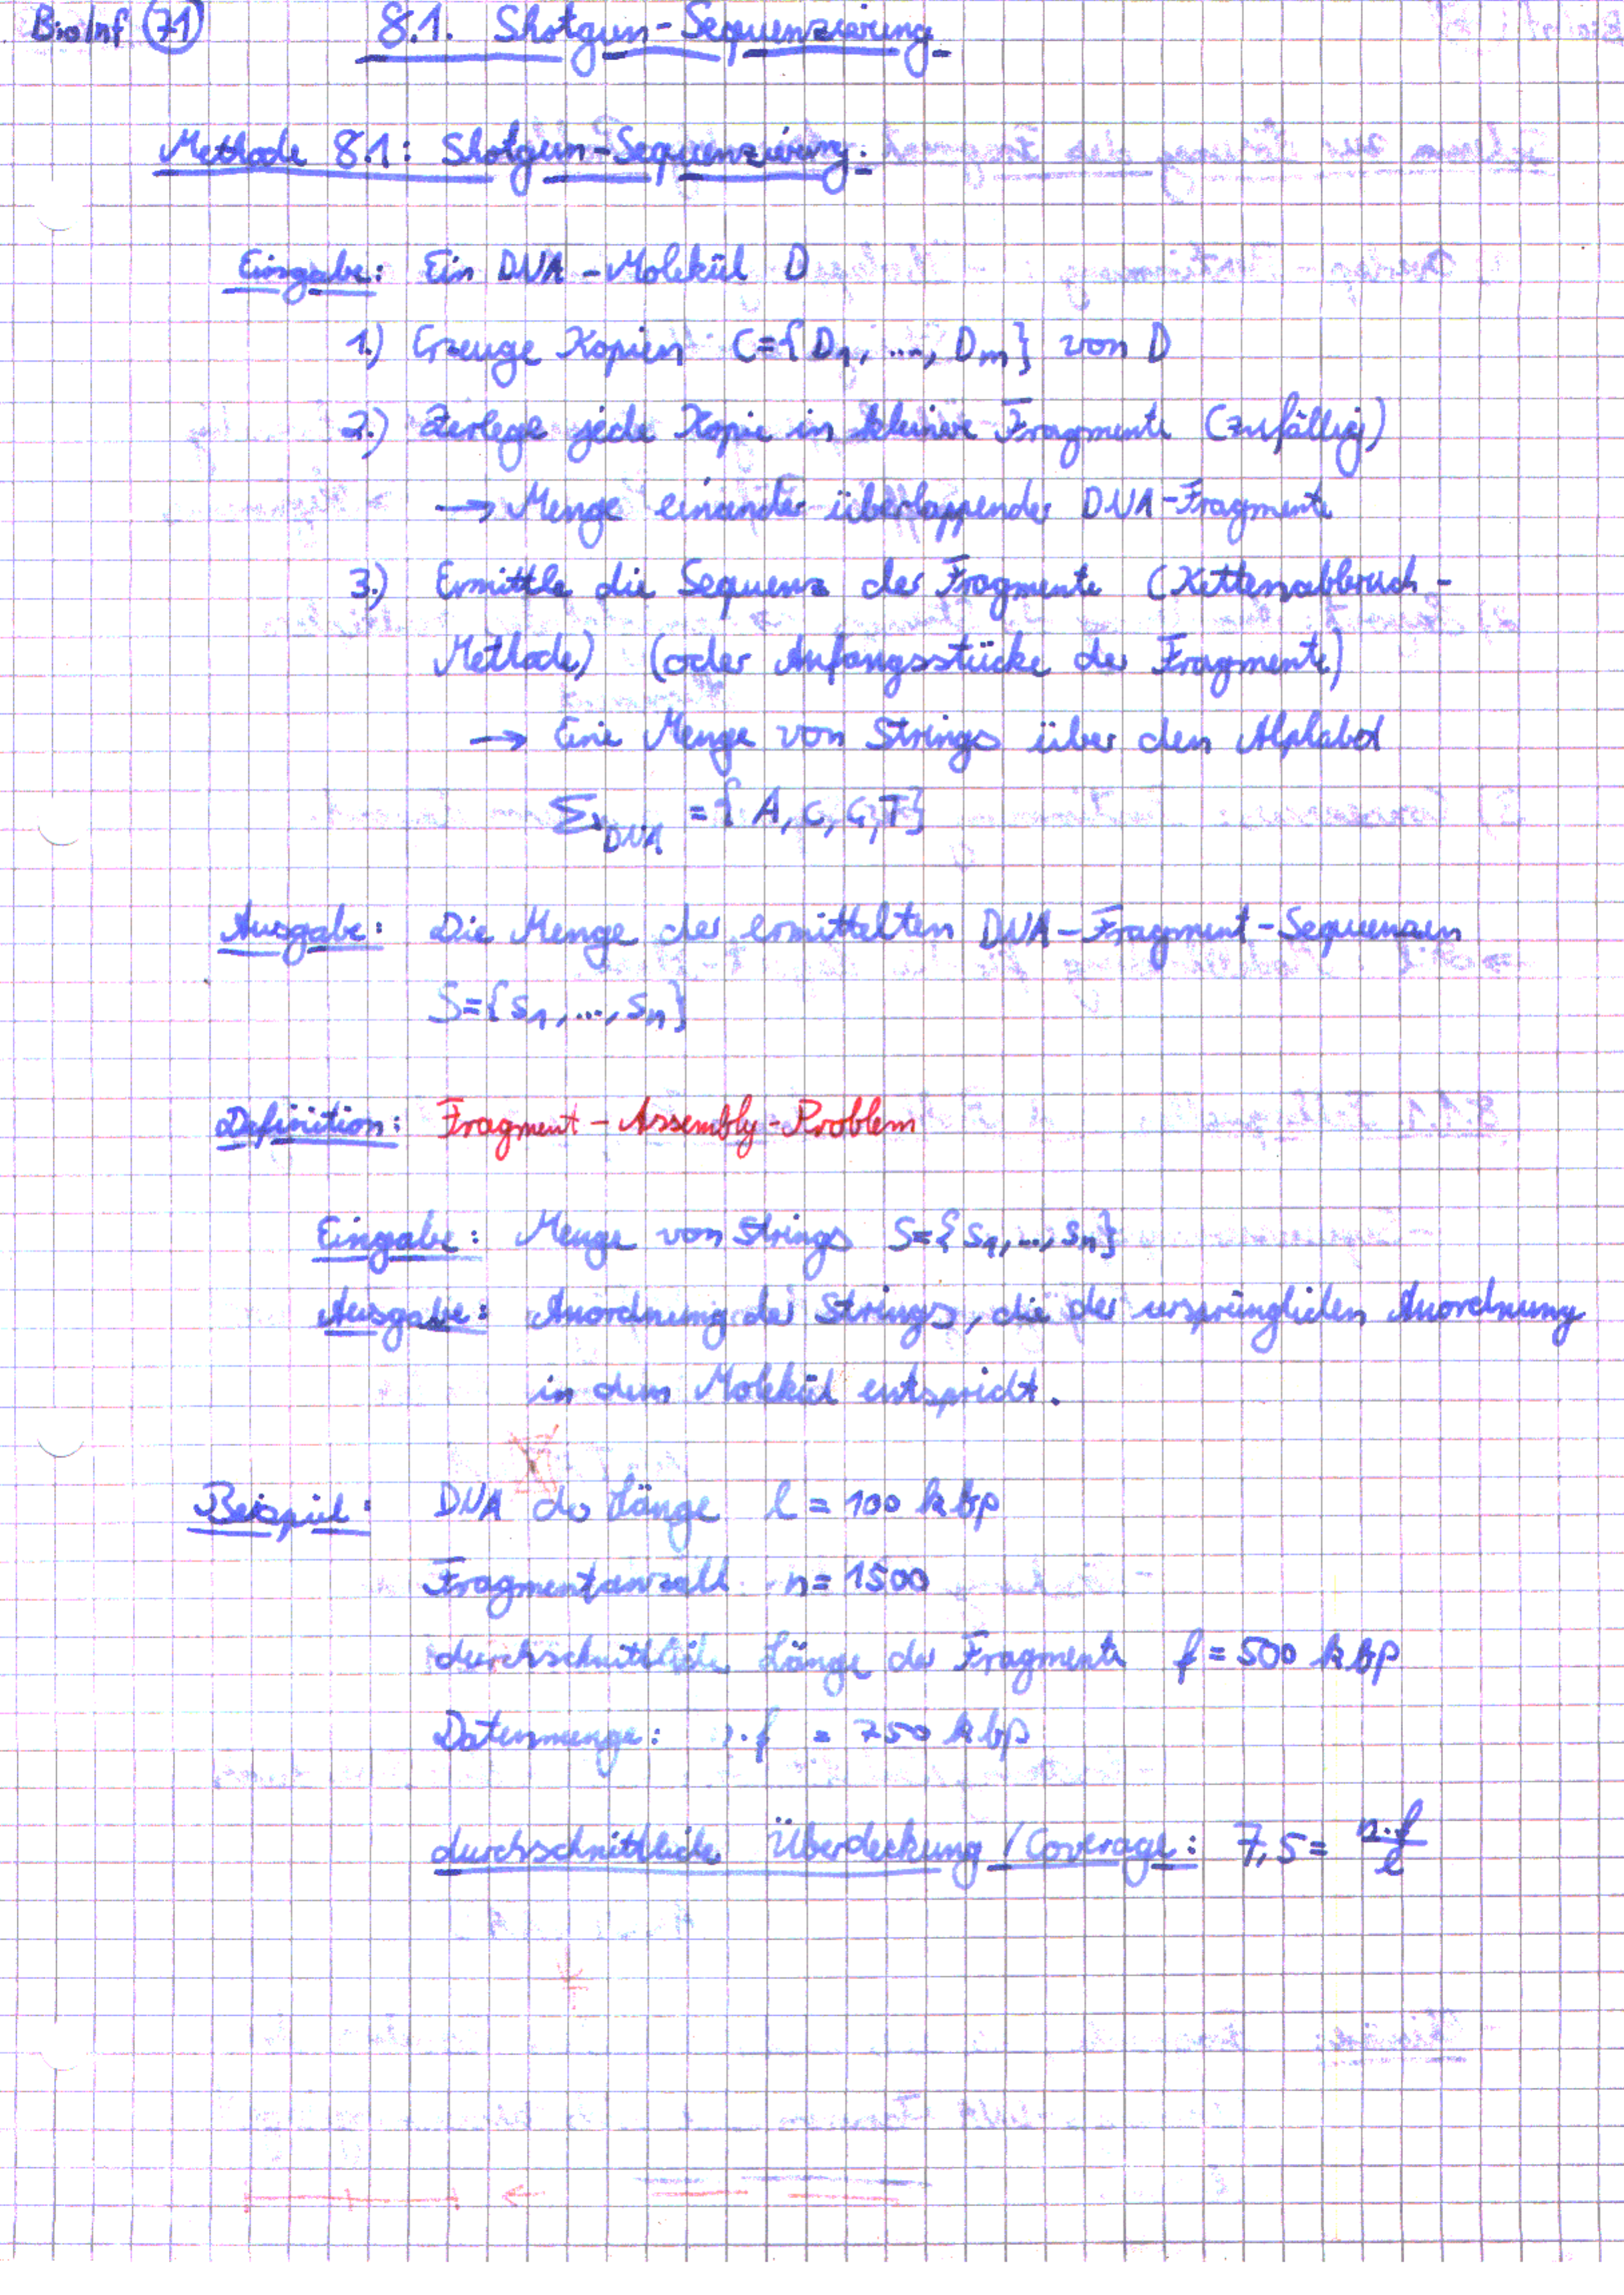 BioInf 71
8.1. Shotgun-Sequenzierung
Methode 8.1: Shotgun-Sequenzierung:
Eingabe: Ein DNA-Molekül D
1.) Erzeuge Kopien C={D1, ..., Dm} von D
2.) Zerlege jede Kopie in kleinere Fragmente (zufällig)
→ Menge einander überlappender DNA-Fragmente
3.) Ermittle die Sequenz der Fragmente (Kettenabbruch-
Methode) (oder Anfangsstücke der Fragmente)
→ Eine Menge von Strings über dem Alphabet
Σ_DNA = {A, C, G, T}
Ausgabe: Die Menge der ermittelten DNA-Fragment-Sequenzen
S={s1, ..., sn}
Definition: Fragment-Assembly-Problem
Eingabe: Menge von Strings S={s1, ..., sn}
Ausgabe: Anordnung der Strings, die der ursprünglichen Anordnung
in dem Molekül entspricht.
Beispiel: DNA der Länge l = 100 kbp
Fragmentanzahl n = 1500
durchschnittliche Länge der Fragmente f = 500 kbp
Datenmenge: n·f = 750 kbp
durchschnittliche Überdeckung / Coverage: 7,5 = n·f/l